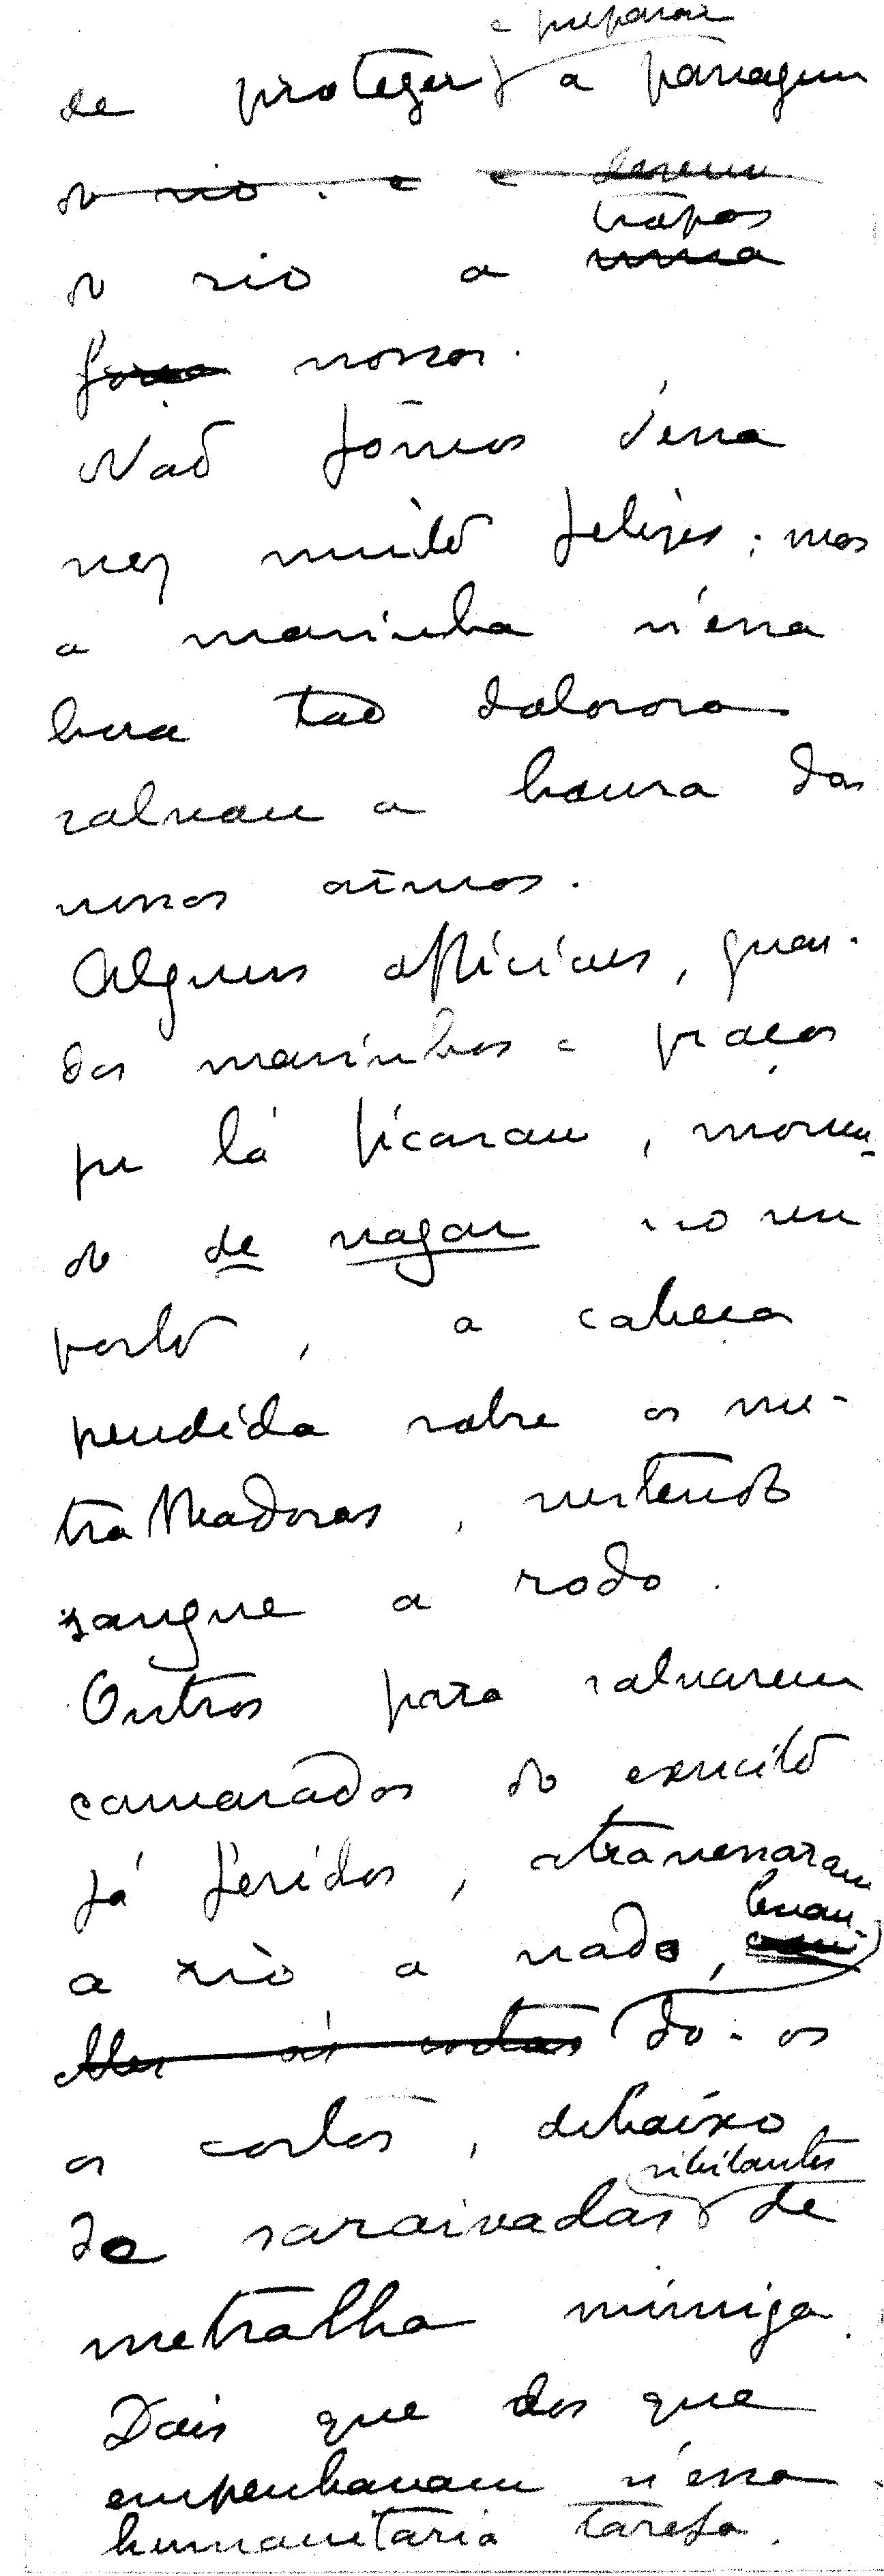 e preparar
de proteger a passagem
do rio. e e derem
tropas
do rio a uma
força nossos.
Não fômos d'essa
vez muito felizes; mas
a marinha n'essa
hora tão dolorosa
salvou a honra das
nossas armas.
Alguns officiaes, guar-
das marinhas e praças
que lá ficaram, morren-
do de vagar no seu
posto, a cabeça
pendida sobre as me-
tralhadoras, vertendo
sangue a rodo.
Outros para salvarem
camaradas do exercito
já feridos, atravessaram
a rio a nado, levan-
às costas do-os
as costas, debaixo
sibilantes
de saraivadas de
metralha inimiga.
Dois que dos que
empenhavam n'essa
humanitaria tarefa.